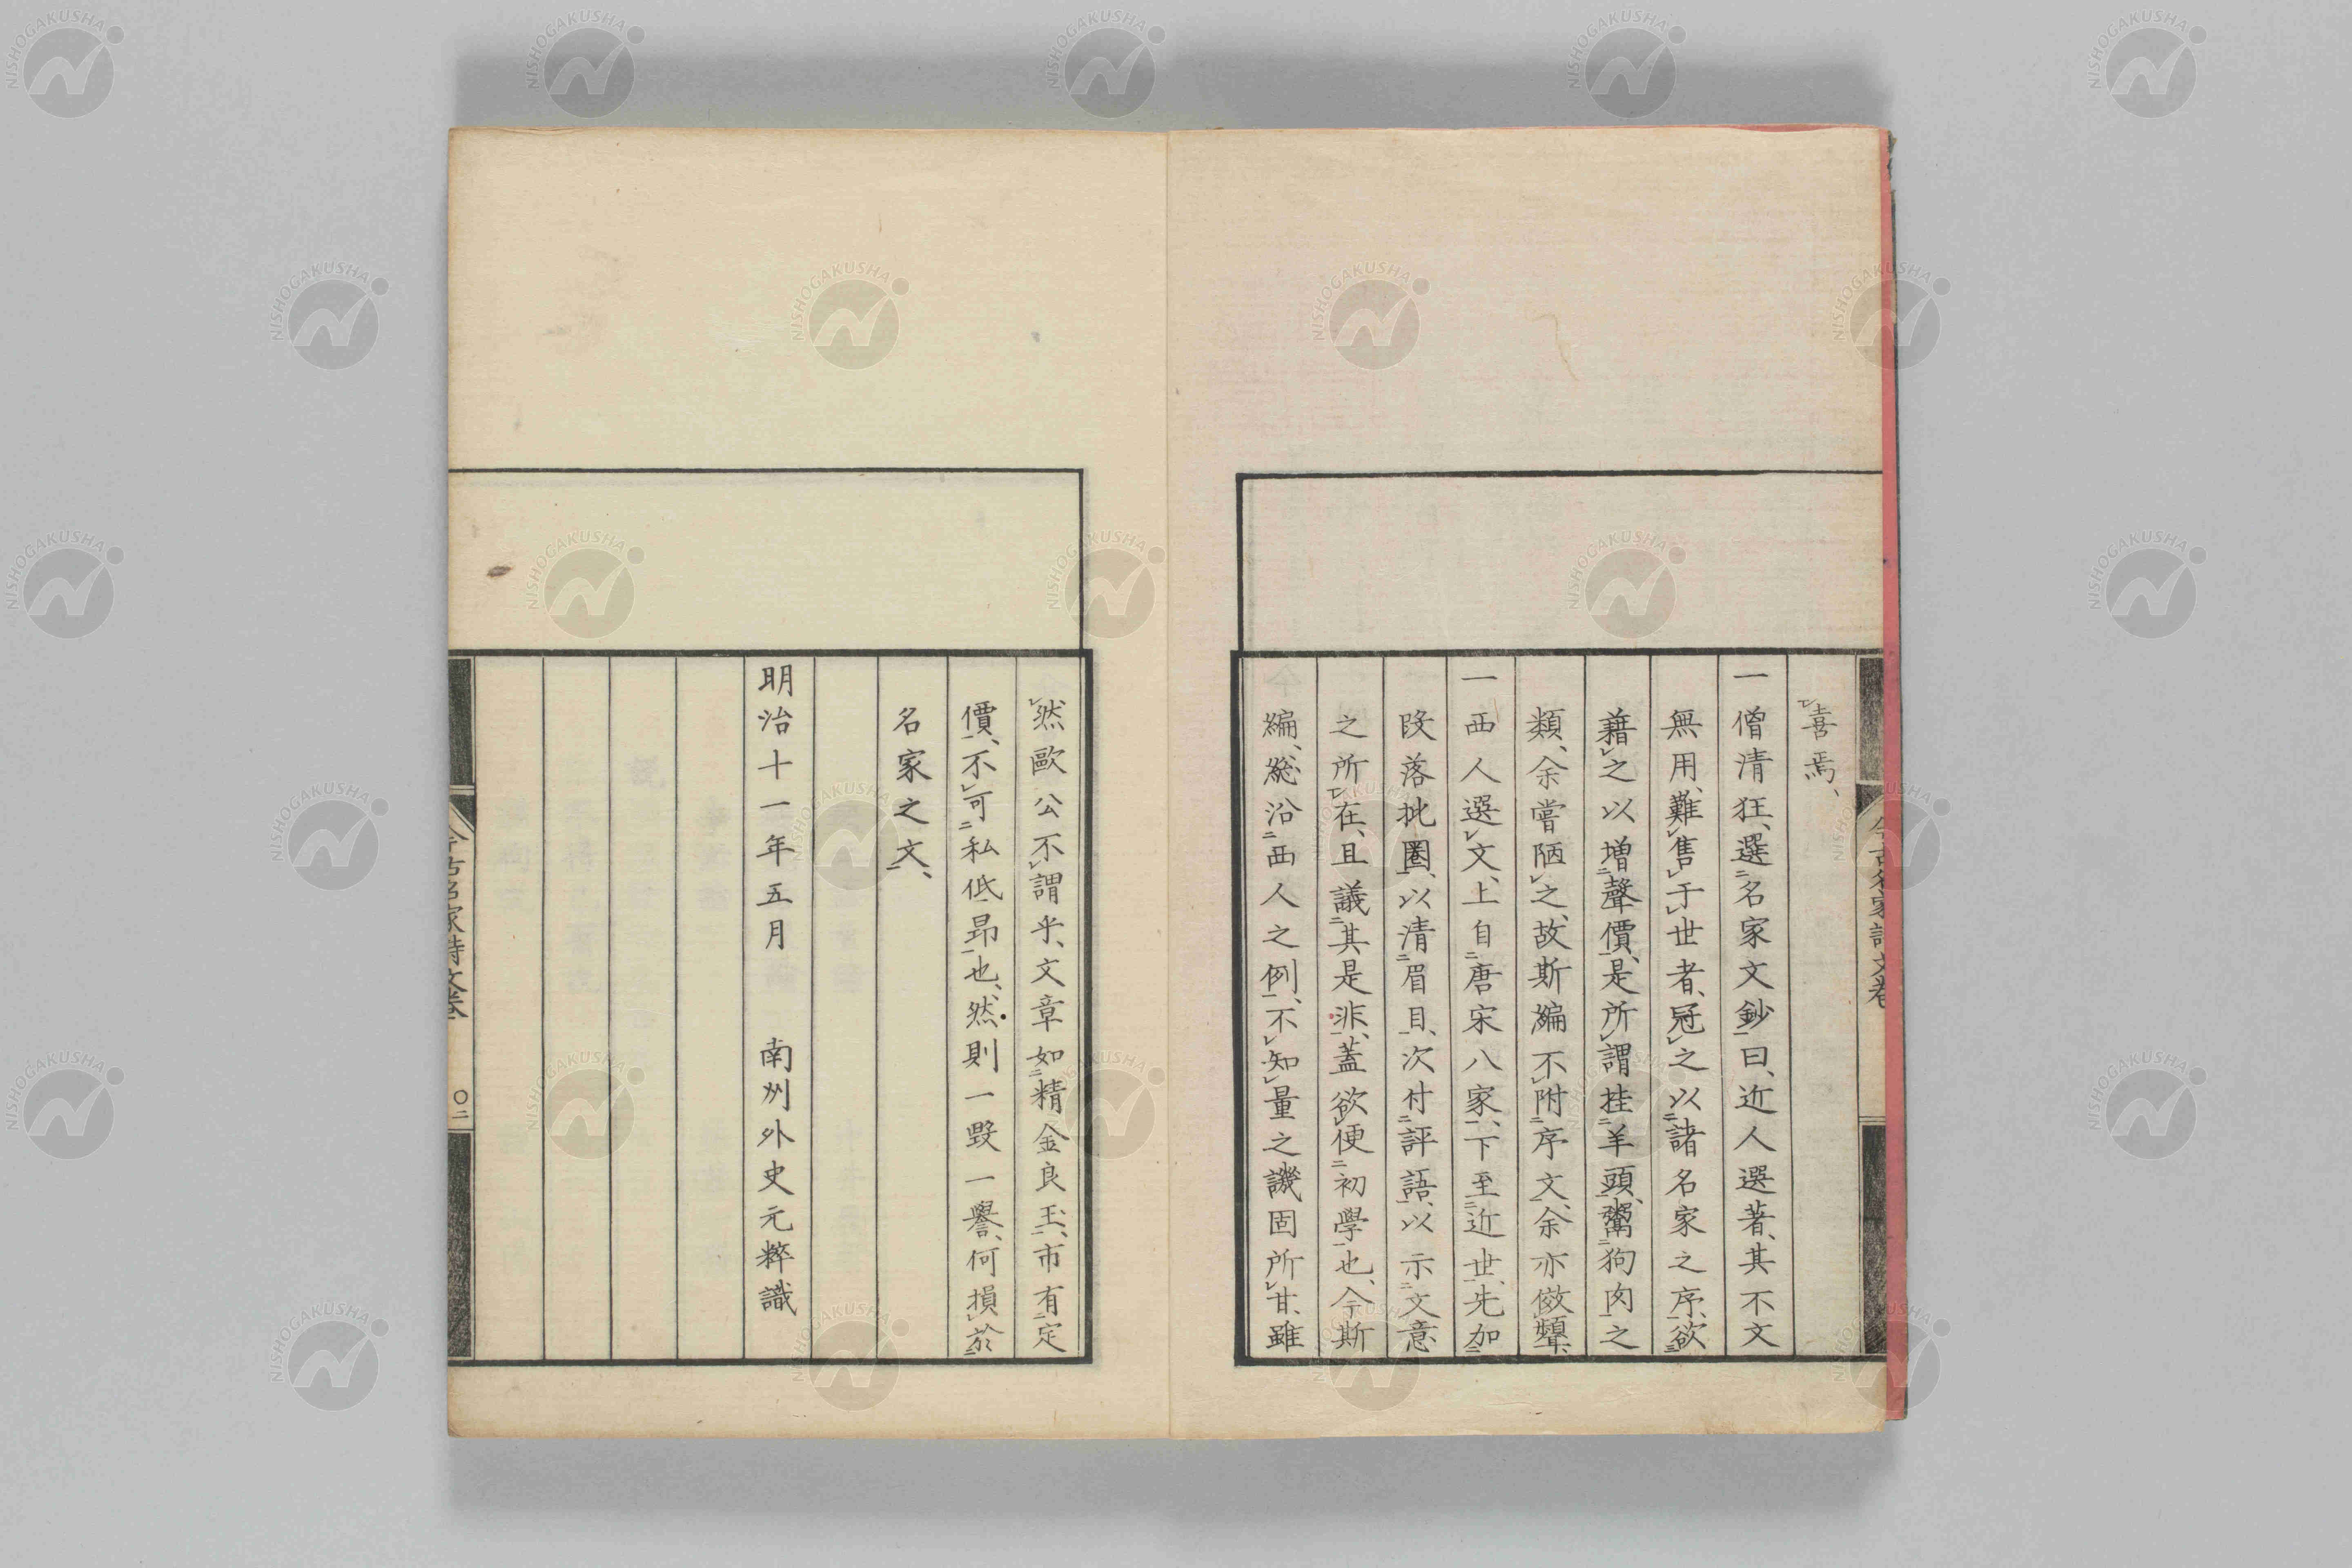 喜焉、
一僧清狂、選名家文鈔曰、近人選著、其不文
無用、難售于世者、冠之以諸名家之序、欲
藉之以增聲價、是所謂挂羊頭、鬻狗肉之
類、余嘗陋之、故斯編不附序文、余亦傚顰、
一西人選文、上自唐宋八家、下至近世、先加
段落批圈、以清眉目、次付評語、以示文意
之所在、且議其是非、蓋欲便初學也、今斯
編、總沿西人之例、不知量之譏固所甘、雖
今古名家詩文卷
然歐公不謂乎、文章如精金良玉、市有定
價、不可私低昂也、然則一毀一譽、何損於
名家之文、
明治十一年五月 南州外史元粹識
今古名家詩文卷一
〇二
NISHOGAKUSHA